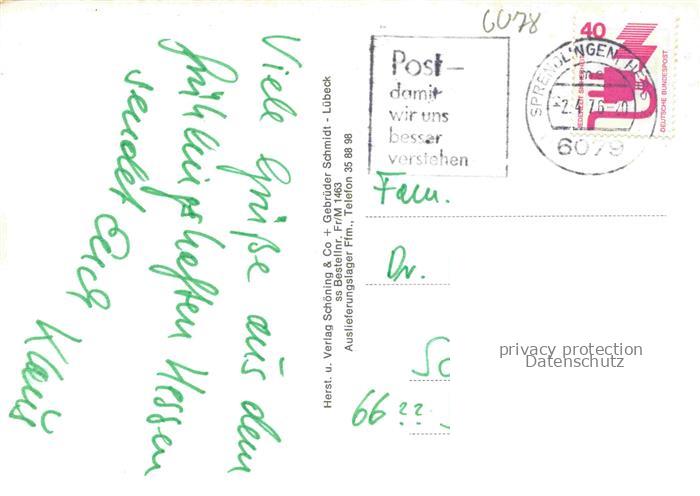 6078
Viele Grüße aus dem
frühlingshaften Hessen
sendet Euch
Klaus
Herst. u. Verlag Schöning & Co + Gebrüder Schmidt - Lübeck
ss Bestellnr. Fr/M 1463
Auslieferungslager Ffm., Telefon 35 88 98
Post-
damit
wir uns
besser
verstehen
40
DEUTSCHE BUNDESPOST
SPRENDLINGEN HESS
2.4.76
6079
Fam.
Dr.
66 ??
privacy protection
Datenschutz